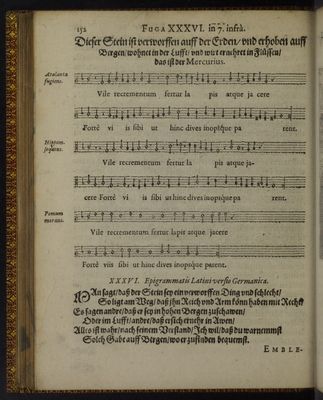 152 FUGA XXXVI. in 7. infrà.
Dieser Stein ist verworffen auff der Erden/ vnd erhoben auff
Bergen/ wohnet in der Lufft/ vnd wirt ernehret in Flüssen/
das ist der Mercurius.
Atalanta
fugiens.
Vile recrementum fertur la pis atque ja cere
Fortè vi is sibi ut hinc dives inopsque pa rent.
Hippom.
sequens.
Vile recrementum fertur la pis atque ja-
cere Fortè vi is sibi ut hinc dives inopsque pa rent.
Pomum
morans.
Vile recrementum fertur lapis atque jacere
Fortè viis sibi ut hinc dives inopsque parent.
XXXVI. Epigrammatis Latini versio Germanica.
MAn sagt/ daß der Stein sey ein verworffen Ding vnd schlecht/
So ligt am Weg/ daß jhn Reich vnd Arm könn haben mit Recht
Es sagen andre/ daß er sey in hohen Bergen zuschawen/
Oder im Lufft/ andre/ daß er sich ernehr in Awen/
Alles ist wahr/ nach seinem Verstand/ Ich wil/ daß du warnemmst
Solch Gab auff Bergen/ wo er zufinden bequemst.
EMBLE-